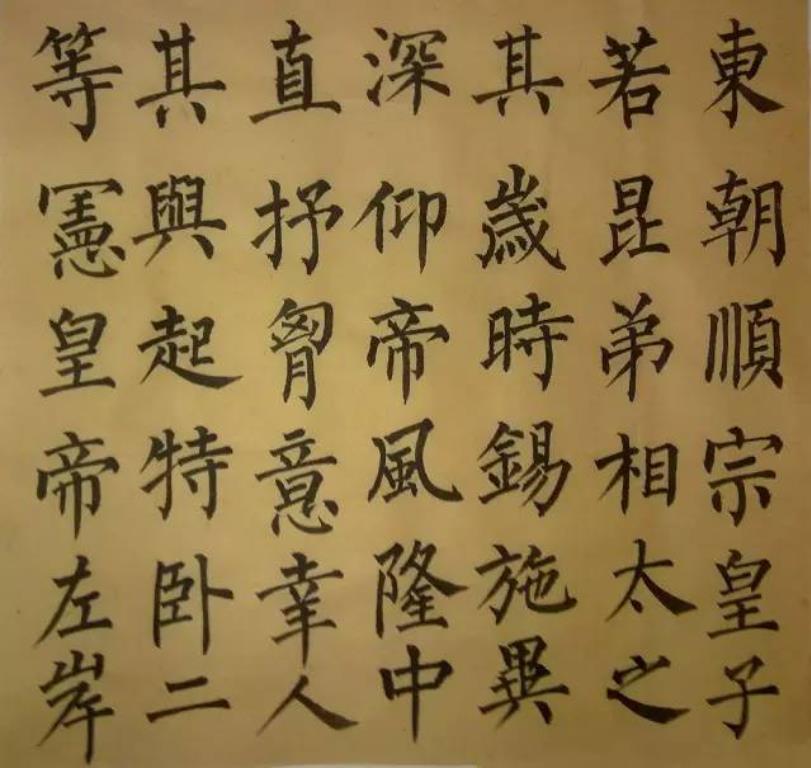 東朝順宗皇子
若昆弟相太之
其歲時錫施異
深仰帝風隆中
直抒胷意幸人
其與起特卧二
等憲皇帝左岸